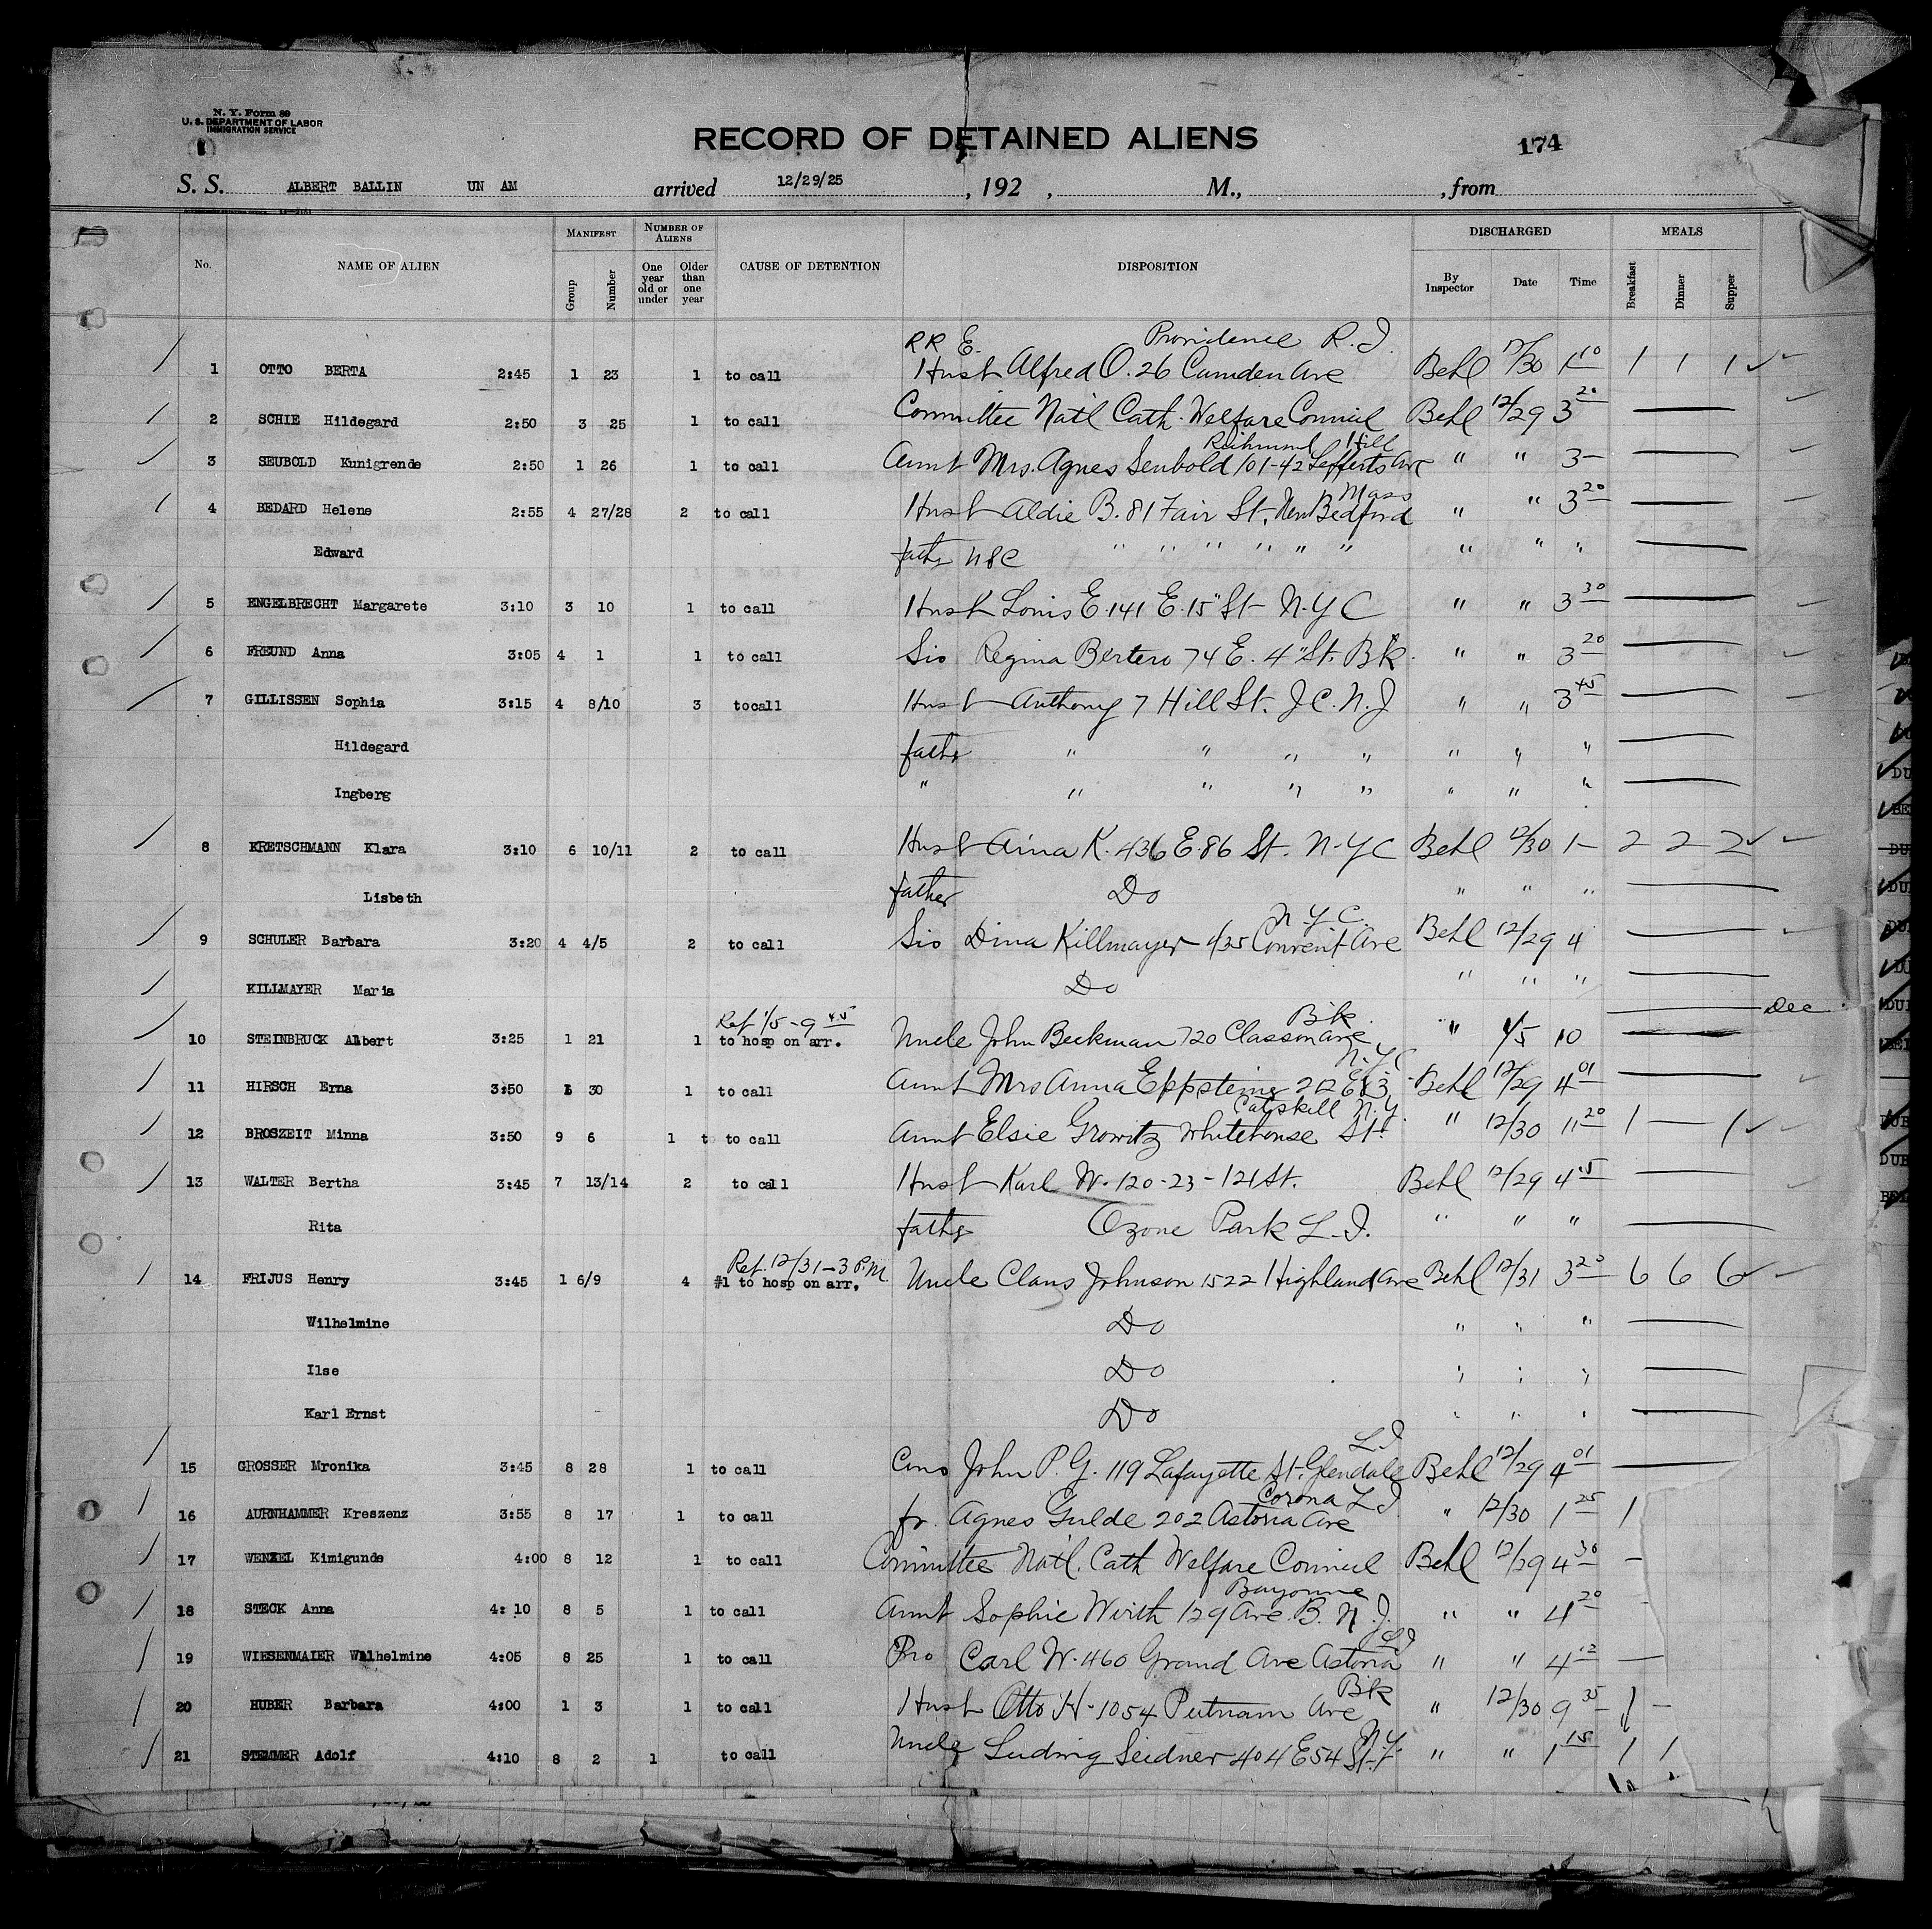 N. Y. Form 89
U. S. DEPARTMENT OF LABOR
IMMIGRATION SERVICE
RECORD OF DETAINED ALIENS
174
S. S. ALBERT BALLIN UN AM arrived 12/29/25, 192 , M., , from
No. NAME OF ALIEN MANIFEST Group Number NUMBER OF ALIENS One year old or under Older than one year CAUSE OF DETENTION DISPOSITION DISCHARGED By Inspector Date Time MEALS Breakfast Dinner Supper
RR E. Providence R.I.
1 OTTO BERTA 2:45 1 23 1 to call Husb Alfred O. 26 Camden Ave Behl 12/30 1 10 1 1 1
2 SCHIE Hildegard 2:50 3 25 1 to call Committee Nat'l Cath. Welfare Council Behl 12/29 3 20
Richmond Hill
3 SEUBOLD Kunigrende 2:50 1 26 1 to call Aunt Mrs. Agnes Seubold 101-42 Lefferts Ave " " 3-
Mass
4 BEDARD Helene 2:55 4 27/28 2 to call Husb Aldie B. 81 Fair St. New Bedford " " 3 20
Edward father USC " " " " " " " " "
5 ENGELBRECHT Margarete 3:10 3 10 1 to call Husb Louis E. 141 E. 15" St N.Y C " " 3 30
6 FREUND Anna 3:05 4 1 1 to call Sis Regina Bertero 74 E. 4" St. Bk. " " 3 20
7 GILLISSEN Sophia 3:15 4 8/10 3 tocall Husb Anthony 7 Hill St. J.C. N.J " " 3 45
Hildegard father " " " " " " "
Ingberg " " " " " " " "
8 KRETSCHMANN Klara 3:10 6 10/11 2 to call Husb K. 436 E. 86 St. N.Y C Behl 12/30 1- 2 2 2
Lisbeth father Do " " "
N.Y.C.
9 SCHULER Barbara 3:20 4 4/5 2 to call Sis Dina Killmayer 425 Convent Ave Behl 12/29 4
KILLMAYER Maria Do " " "
Dec
Ref 1/5-9 45 Bk.
10 STEINBRUCK Albert 3:25 1 21 1 to hosp on arr. Uncle John Beekman 720 Classon Ave " 1/5 10
N.Y.C
11 HIRSCH Erna 3:50 30 1 to call Aunt Mrs Anna Behl 12/29 4 01
Catskill N.Y.
12 BROSZEIT Minna 3:50 9 6 1 t to call Aunt Elsie Growitz Whitehouse St. " 12/30 11 20 1 — 1
13 WALTER Bertha 3:45 7 13/14 2 to call Husb Karl W. 120-23-121 St. Behl 12/29 4 15
Rita father Ozone Park L.I. " " "
Ref. 12/31-3 P.M.
14 FRIJUS Henry 3:45 1 6/9 4 #1 to hosp on arr. Uncle Claus Johnson 1522 Highland Ave Behl 12/31 3 20 6 6 6
Wilhelmine Do " " "
Ilse Do " " "
Karl Ernst Do " " "
L.I
15 GROSSER Mronika 3:45 8 28 1 to call Cous John P. G. 119 Lafayette St. Glendale Behl 12/29 4 01
Corona L I
16 AURNHAMMER Kreszenz 3:55 8 17 1 to call fr. Agnes Gulde 202 Astoria Ave " 12/30 1 25 1
17 WENZEL Kimigunde 4:00 8 12 1 to call Committee Nat'l. Cath Welfare Council Behl 12/29 4 30
Bayonne
18 STECK Anna 4:10 8 5 1 to call Aunt Sophie Wirth 129 Ave. B. N.J. " " 4 20
L.I
19 WIESENMAIER Wilhelmine 4:05 8 25 1 to call Bro Carl W. 460 Grand Ave Astoria " " 4 12
Bk
20 HUBER Barbara 4:00 1 3 1 to call Husb Otto H. 1054 Putnam Ave " 12/30 9 35 1
N.Y.
21 STEMMER Adolf 4:10 8 2 1 to call Uncle Ludwig Seidner 404 E 54 St. " " 1 15 1 1